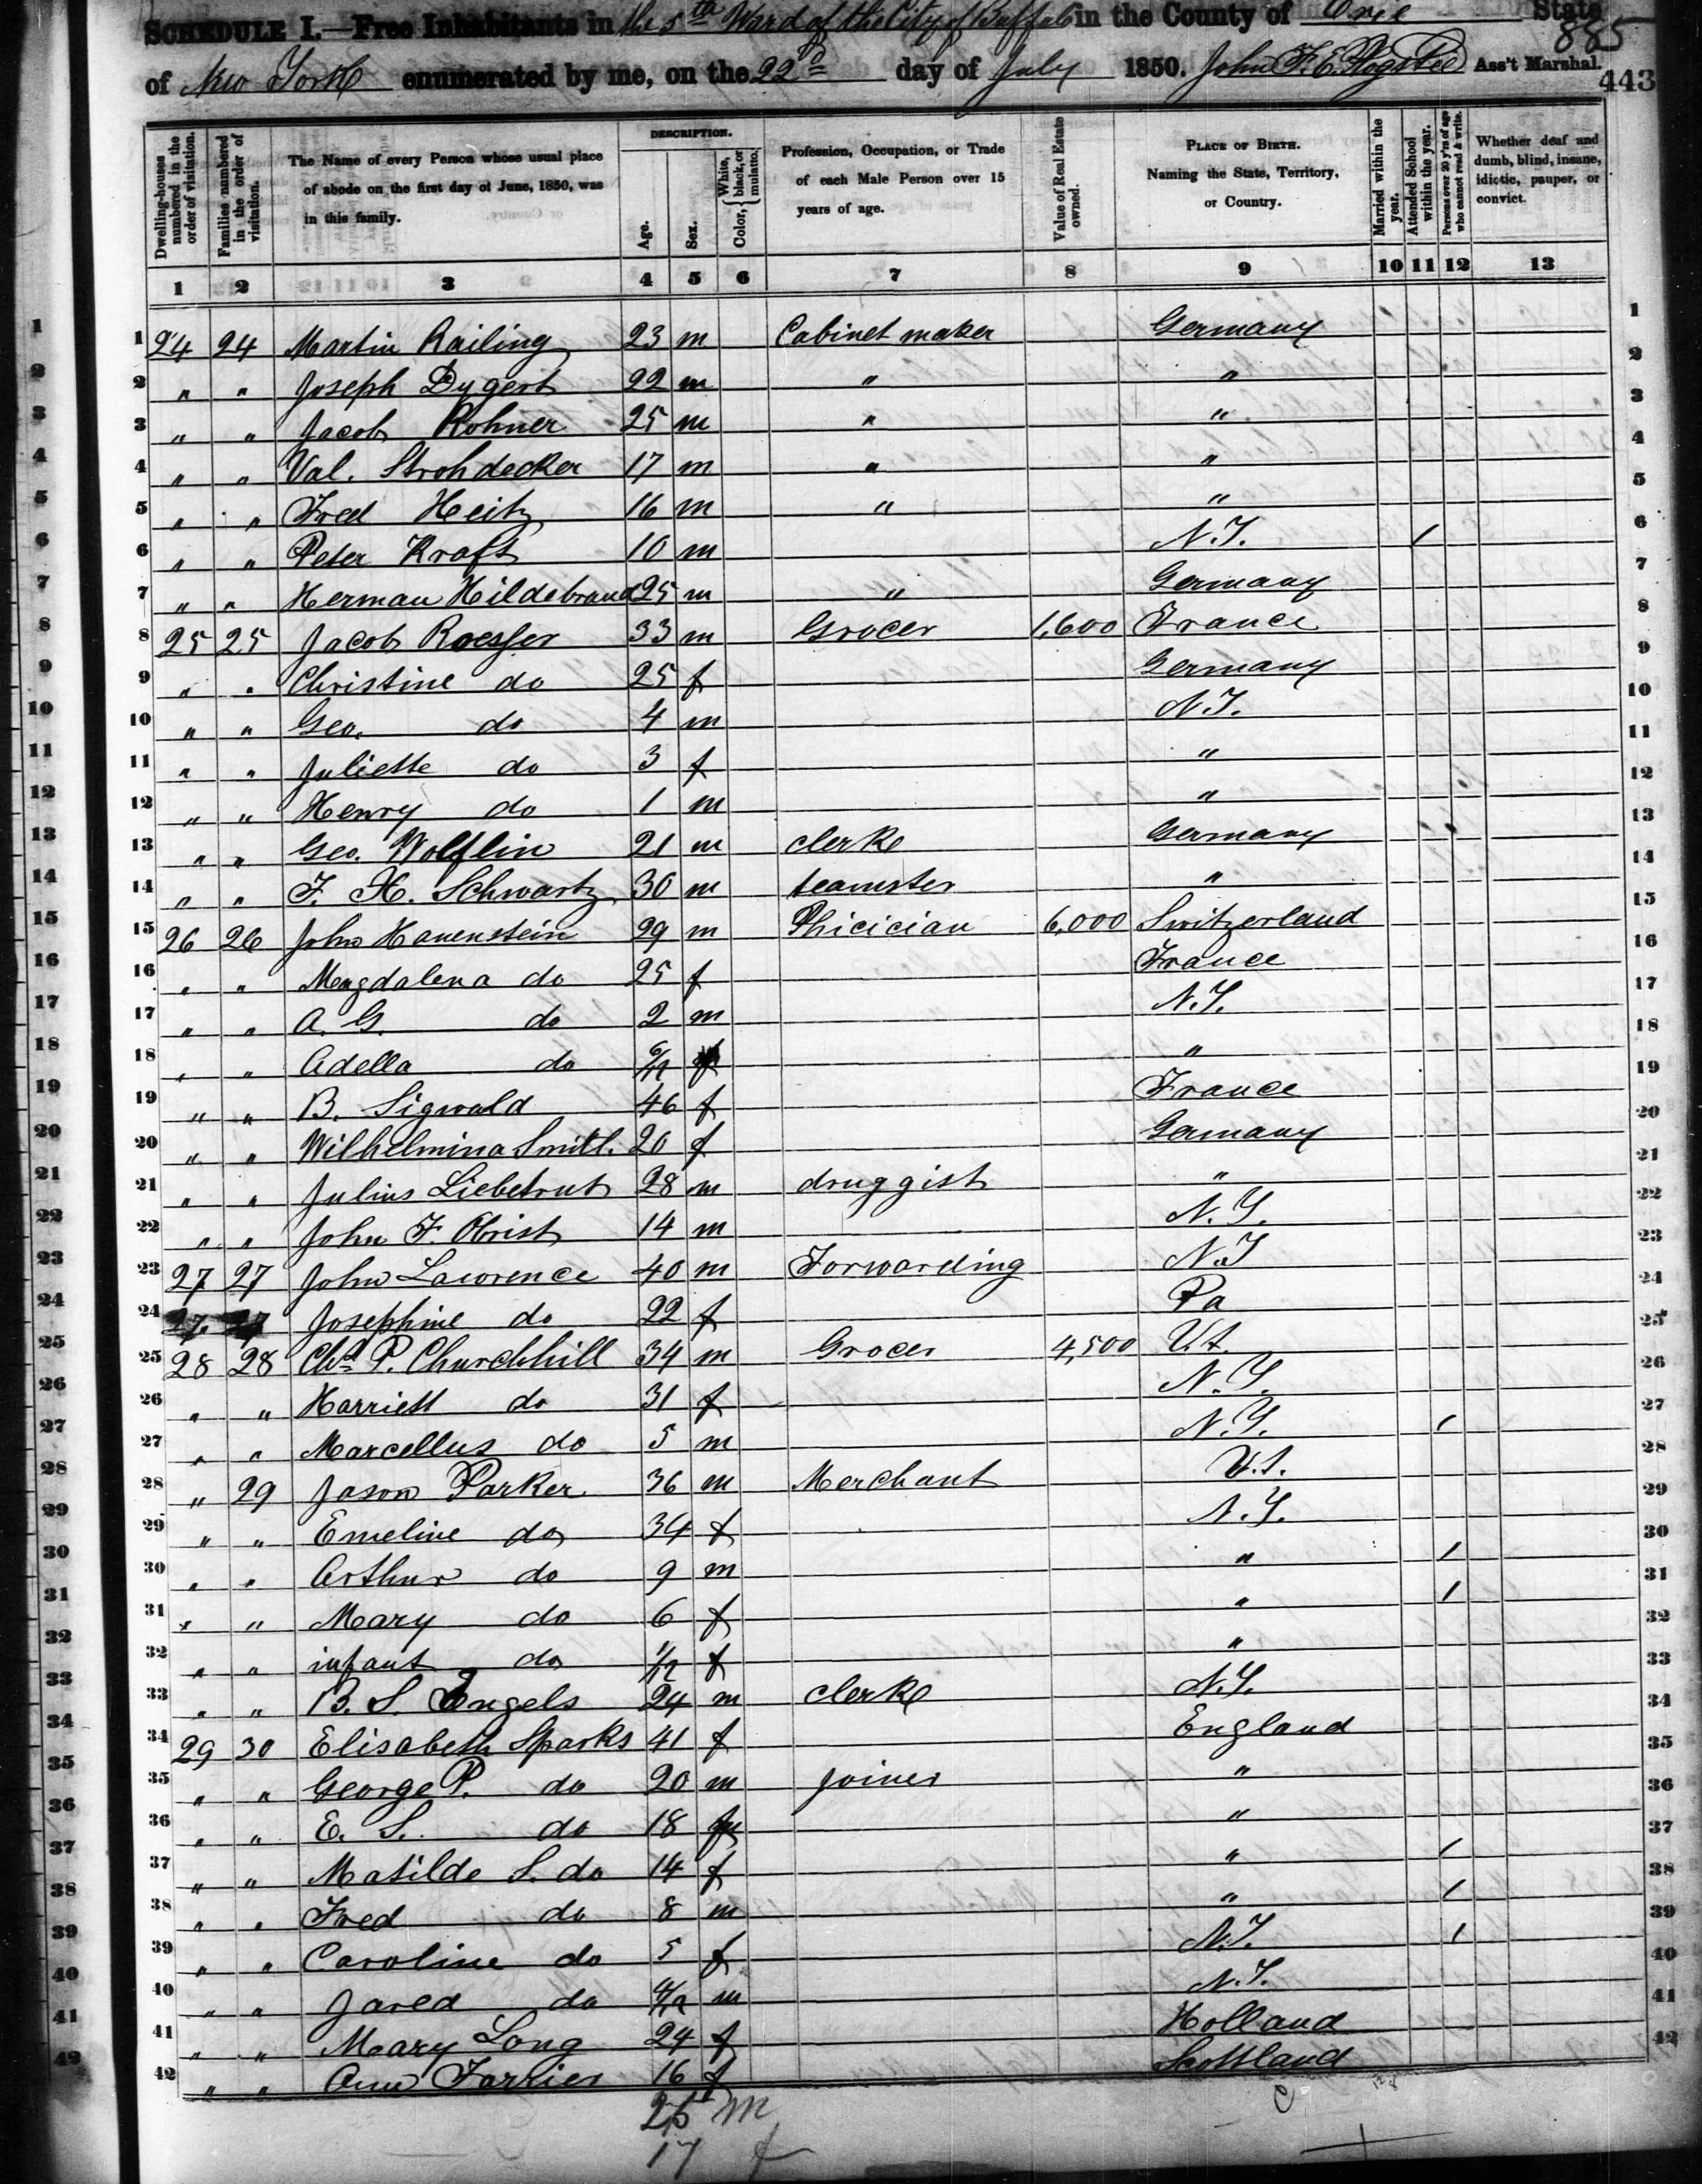 SCHEDULE I.—Free Inhabitants in the 5th Ward of the City of Buffalo in the County of Erie State
885
of New York enumerated by me, on the 22d day of July 1850. John F. E. Ass't Marshal.
443
Dwelling-houses numbered in the order of visitation.
Families numbered in the order of visitation.
The Name of every Person whose usual place of abode on the first day of June, 1850, was in this family.
DESCRIPTION.
Age.
Sex.
Color, { White, black, or mulatto.
Profession, Occupation, or Trade of each Male Person over 15 years of age.
Value of Real Estate owned.
PLACE OF BIRTH. Naming the State, Territory, or Country.
Married within the year.
Attended School within the year.
Persons over 20 y'rs of age who cannot read & write.
Whether deaf and dumb, blind, insane, idiotic, pauper, or convict.
1 2 3 4 5 6 7 8 9 10 11 12 13
1 24 24 Martin Railing 23 m Cabinet maker Germany 1
2 " " Joseph Dygert 22 m " " 2
3 " " Jacob Rohner 25 m " " 3
4 " " Val. Strohdecker 17 m " " 4
5 " " Fred Heitz 16 m " " 5
6 " " Peter Kraft 10 m N.Y. / 6
7 " " Herman Hildebrand 25 m " Germany 7
8 25 25 Jacob Roesser 33 m Grocer 1,600 France 8
9 " " Christine do 25 f Germany 9
10 " " Geo. do 4 m N.Y. 10
11 " " Juliette do 3 f " 11
12 " " Henry do 1 m " 12
13 " " Geo. Wolflin 21 m clerk Germany 13
14 " " F. H. Schwartz 30 m teamster " 14
15 26 26 John Hauenstein 29 m Phicician 6,000 Switzerland 15
16 " " Magdalena do 25 f France 16
17 " " A. G. do 2 m N.Y. 17
18 " " Adella do 6/12 f " 18
19 " " B. Sigwald 46 f France 19
20 " " Wilhelmina Smith 20 f Germany 20
21 " " Julius Liebetrut 28 m druggist " 21
22 " " John F. Obrist 14 m N.Y. 22
23 27 27 John Lawrence 40 m Forwarding N.Y 23
24 27 27 Josephine do 22 f Pa 24
25 28 28 Chs P. Churchhill 34 m Grocer 4,500 V.t. 25
26 " " Harriett do 31 f N.Y. 26
27 " " Marcellus do 5 m N.Y. / 27
28 " 29 Jason Parker 36 m Merchant V.t. 28
29 " " Emeline do 34 f N.Y. 29
30 " " Arthur do 9 m " / 30
31 " " Mary do 6 f " / 31
32 " " infant do 1/12 f " 32
33 " " B. S. Engels 24 m clerk N.Y. 33
34 29 30 Elisabeth Sparks 41 f England 34
35 " " George P. do 20 m joiner " 35
36 " " E. S. do 18 " 36
37 " " Matilde S. do 14 f " / 37
38 " " Fred do 8 m " / 38
39 " " Caroline do 5 f N.Y. / 39
40 " " Jared do 4/12 m N.Y. 40
41 " " Mary Long 24 f Holland 41
42 " " Ann Farrier 16 f Scottland 42
25 m
17 f